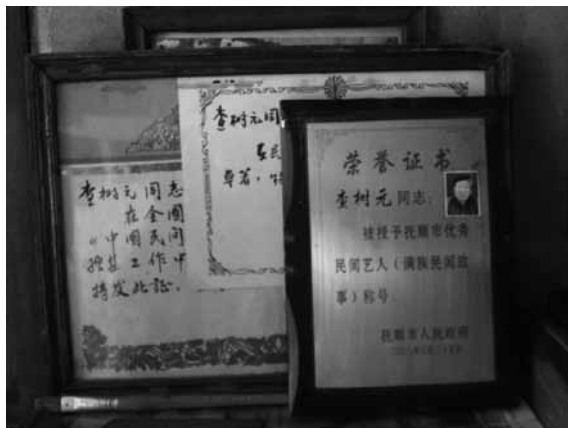 查树元同志
在全国
《中国民间
工作中
特发此证。
查树元同
民
卓著，特
荣誉证书
查树元同志：
被授予抚顺市优秀
民间艺人（满族民间故
事）称号
抚顺市人民政府